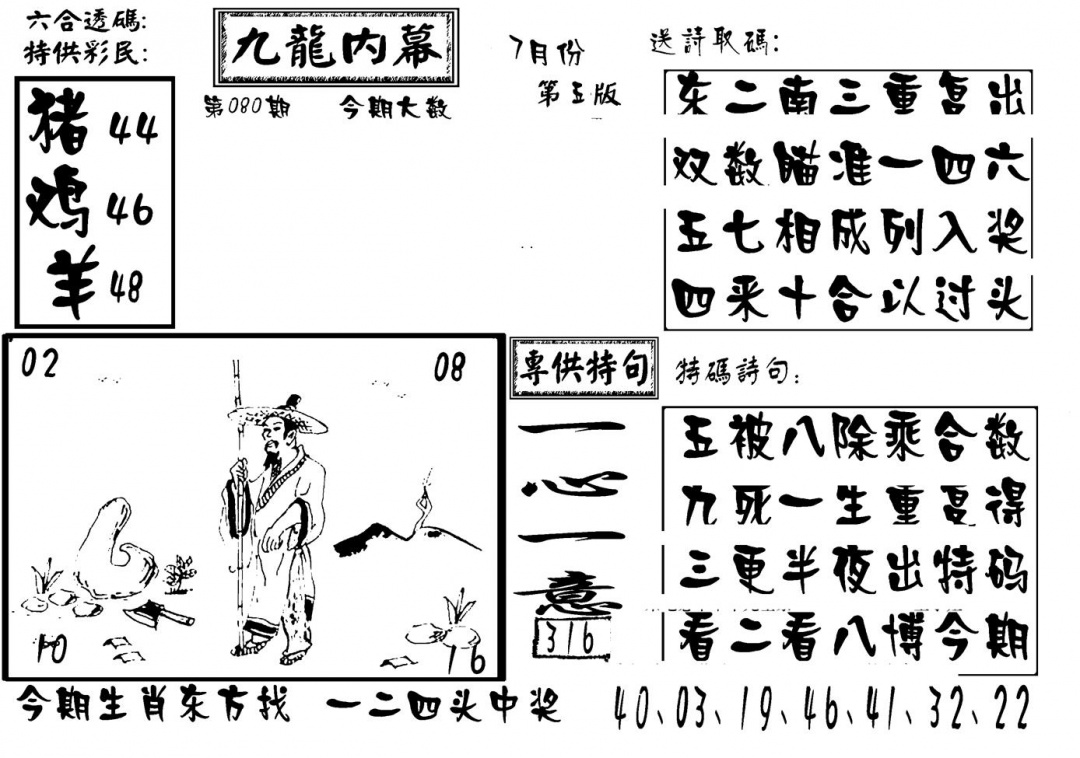 六合透碼:
特供彩民:
猪 44
鸡 46
羊 48
九龍内幕
第080期 今期大数
7月份
第五版
送詩取碼:
东二南三重复出
双数瞄准一四六
五七相成列入奖
四来十合以过头
02 08
10 16
專供特句
一心一意
316
特碼詩句:
五被八除乘合数
九死一生重复得
三更半夜出特码
看二看八博今期
今期生肖东方找 一二四头中奖 40、03、19、46、41、32、22